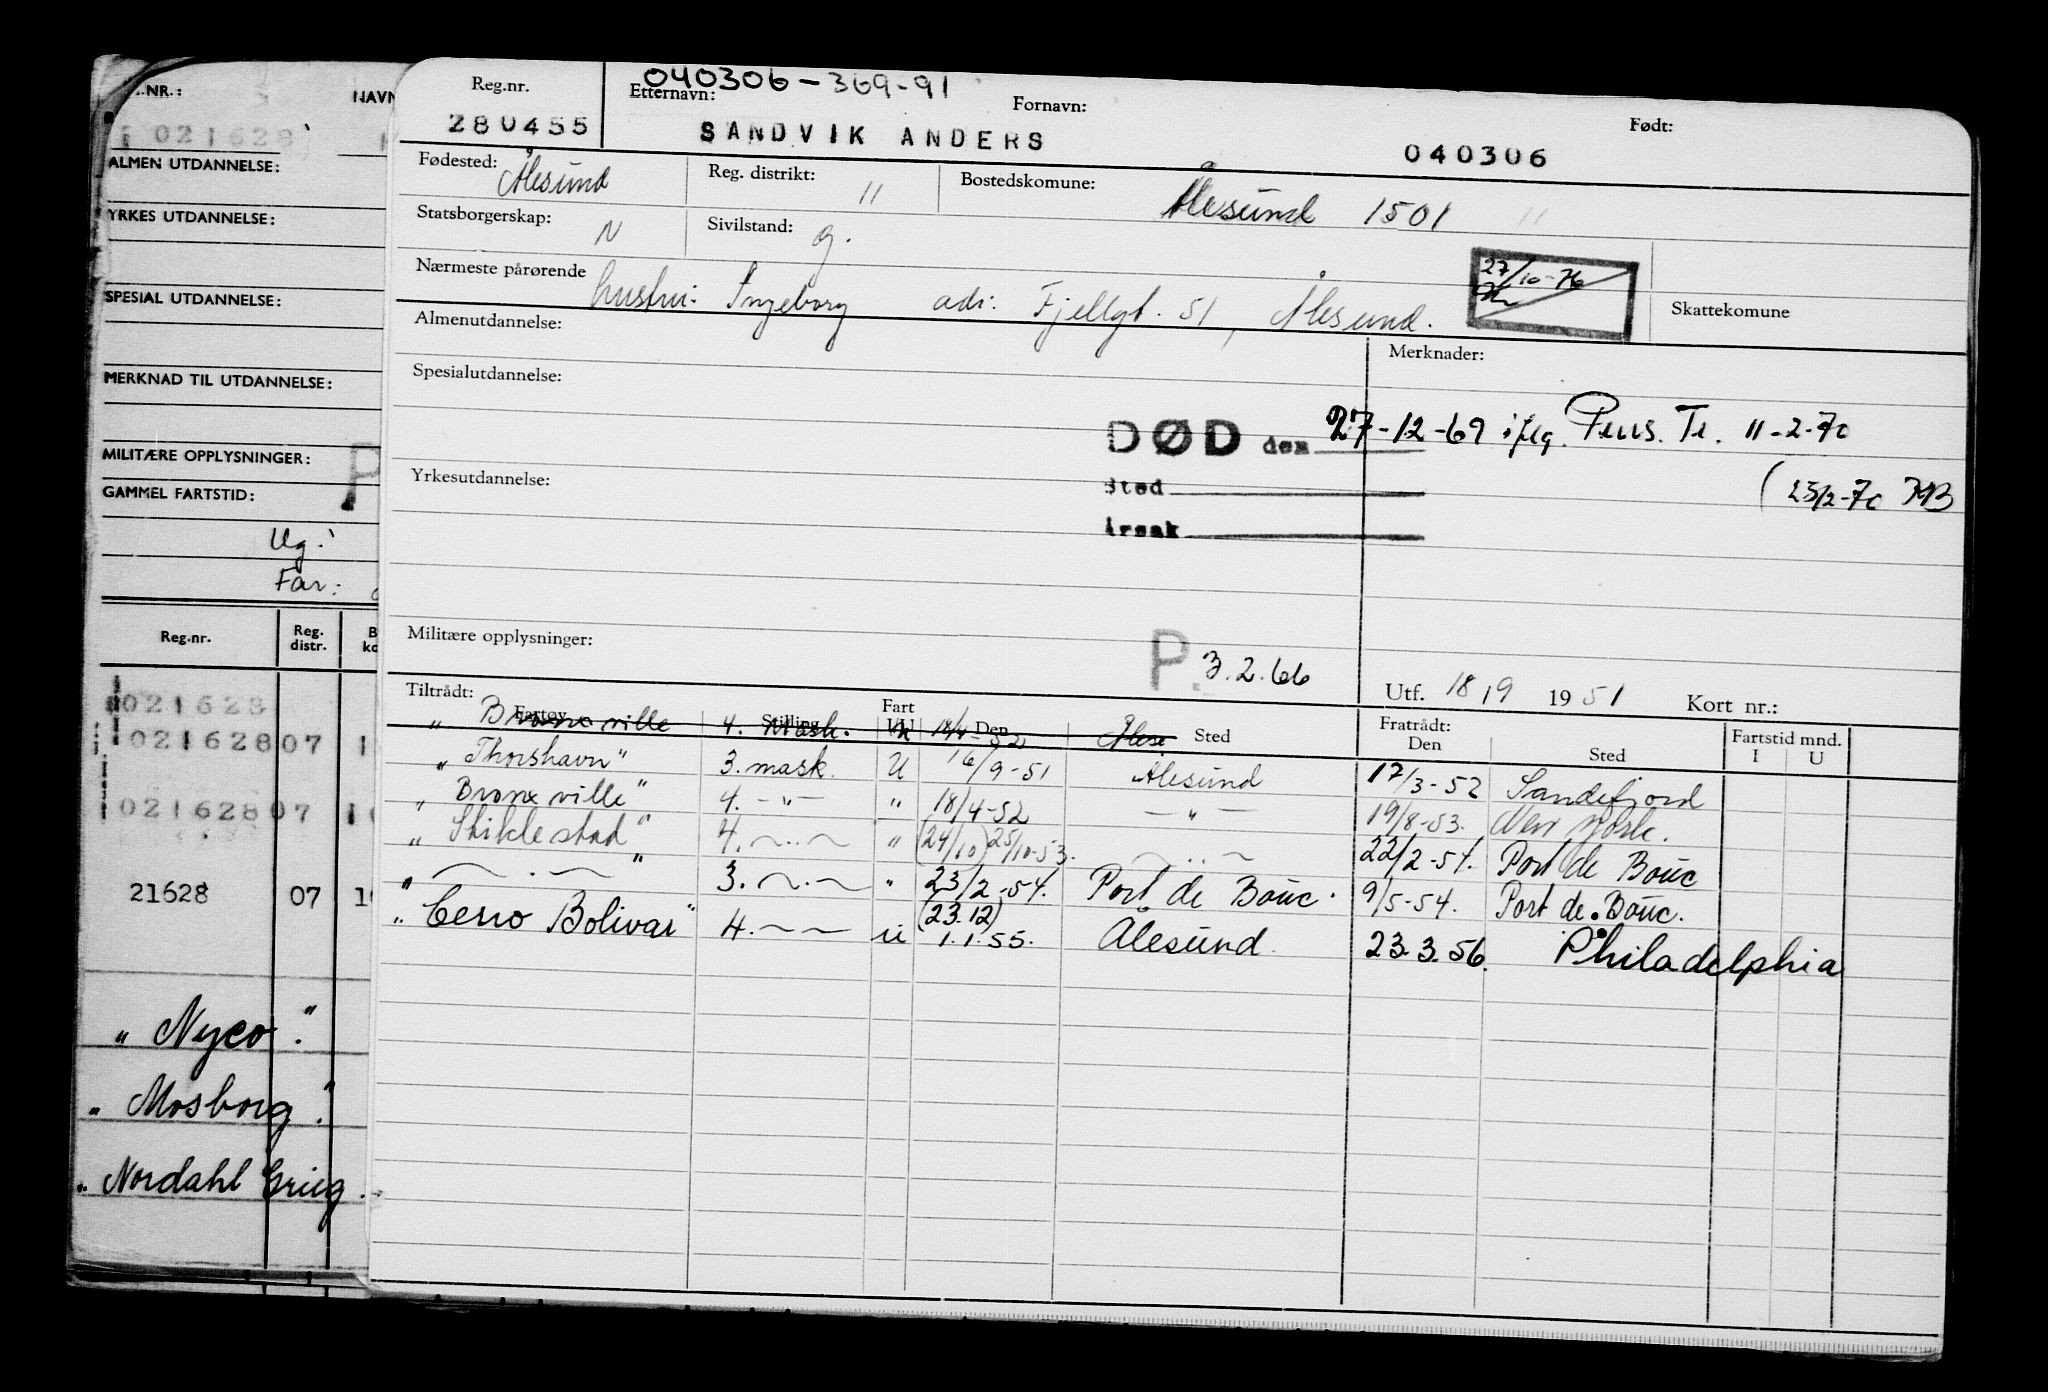 040306-369-91
Reg.nr. Etternavn: Fornavn: Født:
280455 SANDVIK ANDERS 040306
Fødested: Ålesund Reg. distrikt: 11 Bostedskomune: Ålesund 1501 11
Statsborgerskap: N Sivilstand: g.
27/10-76
Nærmeste pårørende hustru: Ingeborg adr: Fjellgt. 51, Ålesund. Skattekomune
Almenutdannelse: Merknader:
Spesialutdannelse:
DØD den 27-12-69 iflg. Pens. Tr. 11-2-70
Sted (25/2-70 MB
Yrkesutdannelse:
Årsak
Militære opplysninger: P. 3.2.66
Utf. 18/9 1951 Kort nr.:
Tiltrådt: Fartøy Stilling Fart U Den Sted Fratrådt: Den Sted Fartstid mnd. I U
„ Bronxville 4. Mask. U 18/4-52 Ålesu
„ Thorshavn" 3. mask. U 16/9-51 Ålesund 17/3-52 Sandefjord
„ Bronxville" 4. -"- " 18/4-52 -"- 19/8-53. New York.
„ Stiklestad" 4. -"- " (24/10) 25/10-53. -"- 22/2-54. Port de Bouc
„ -"- " 3. -"- " 23/2-54. Port de Bouc. 9/5-54. Port de Bouc.
„ Cerro Bolivar" 4. -"- U (23.12) 1.1.55. Ålesund. 23.3.56. Philadelphia
.NR.: NAVN
021628
ALMEN UTDANNELSE:
YRKES UTDANNELSE:
SPESIAL UTDANNELSE:
MERKNAD TIL UTDANNELSE:
MILITÆRE OPPLYSNINGER: P
GAMMEL FARTSTID:
Ug.:
Far:
Reg.nr. Reg. distr. B ko
021628
021628 07 1
021628 07 1
21628 07 1
„ Nyco".
„ Mosborg".
„ Nordahl Grieg.